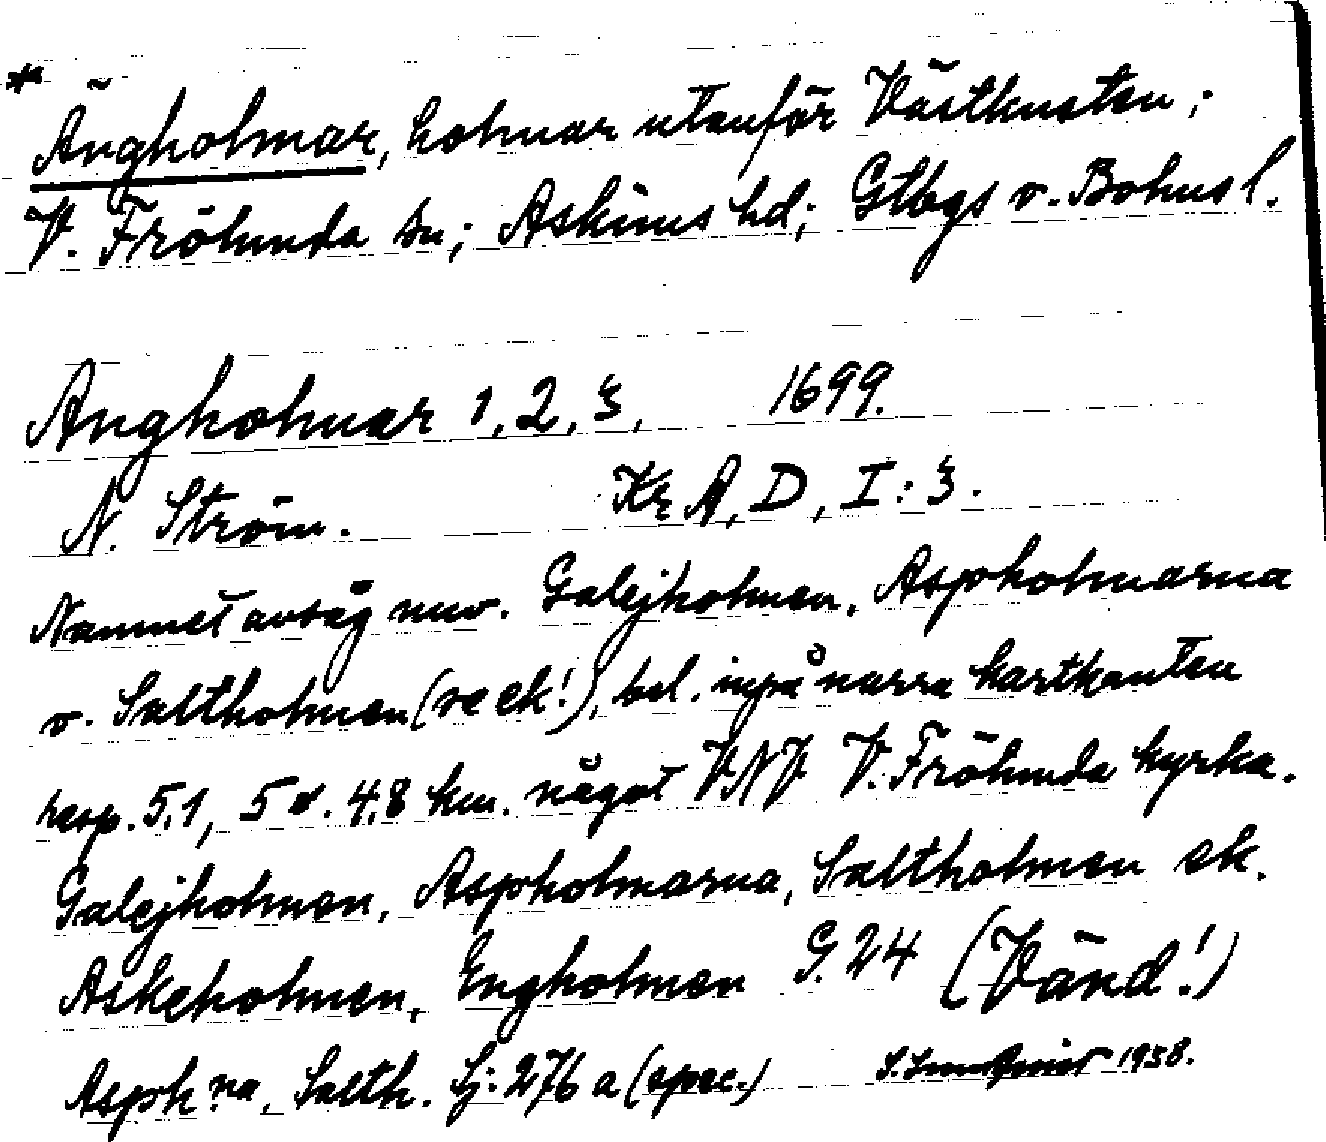 * Ängholmar, holmar utanför Västkusten;
V. Frölunda sn; Askims hd; Gtbgs o. Bohusl.
Ängholmar 1, 2, 3, 1699.
N. Ström. KrA, D, I: 3.
Namnet avsåg nuv. Galejholmen, Aspholmarna
o. Saltholmen (se ek!), bel. inpå norra kartkanten
resp. 5,1, 5 o. 4,8 km. något VNV V. Frölunda kyrka.
Galejholmen, Aspholmarna, Saltholmen ek.
Askeholmen, Engholmen G. 24 (Vänd!)
Asph:na, Salth. Sj: 276 a (spec.) 1938.